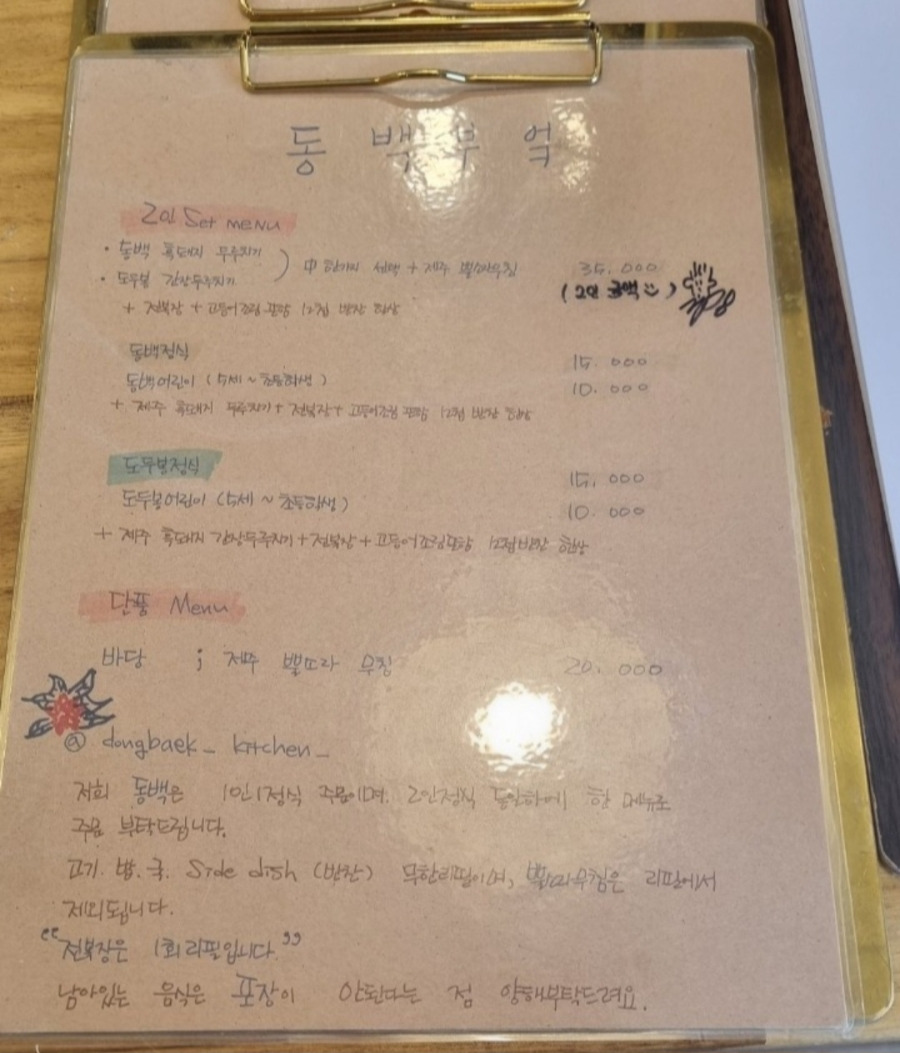 동백부엌
2인 Set menu
• 동백 흑돼지 두루치기
• 도두봉 간장두루치기
) 中 한가지 선택 + 제주 뿔소라무침 35.000
(2인 금액 )
+ 전복장 + 고등어조림 포함 12첩 반찬 한상
동백정식 15.000
동백어린이 (5세 ~ 초등학생) 10.000
+ 제주 흑돼지 두루치기 + 전복장 + 고등어조림 포함 12첩 반찬 한상
도두봉정식 15.000
도두봉어린이 (5세 ~ 초등학생) 10.000
+ 제주 흑돼지 간장두루치기 + 전복장 + 고등어조림포함 12첩반찬 한상
단품 Menu
바당 ; 제주 뿔소라 무침 20.000
@ dongbaek_ kitchen_
저희 동백은 1인1정식 주문이며, 2인정식 동일하에 한 메뉴로
주문 부탁드립니다.
고기. 밥. 국. Side dish (반찬) 무한리필이며, 뿔소라무침은 리필에서
제외됩니다.
"전복장은 1회 리필입니다."
남아있는 음식은 포장이 안된다는 점 양해부탁드려요.